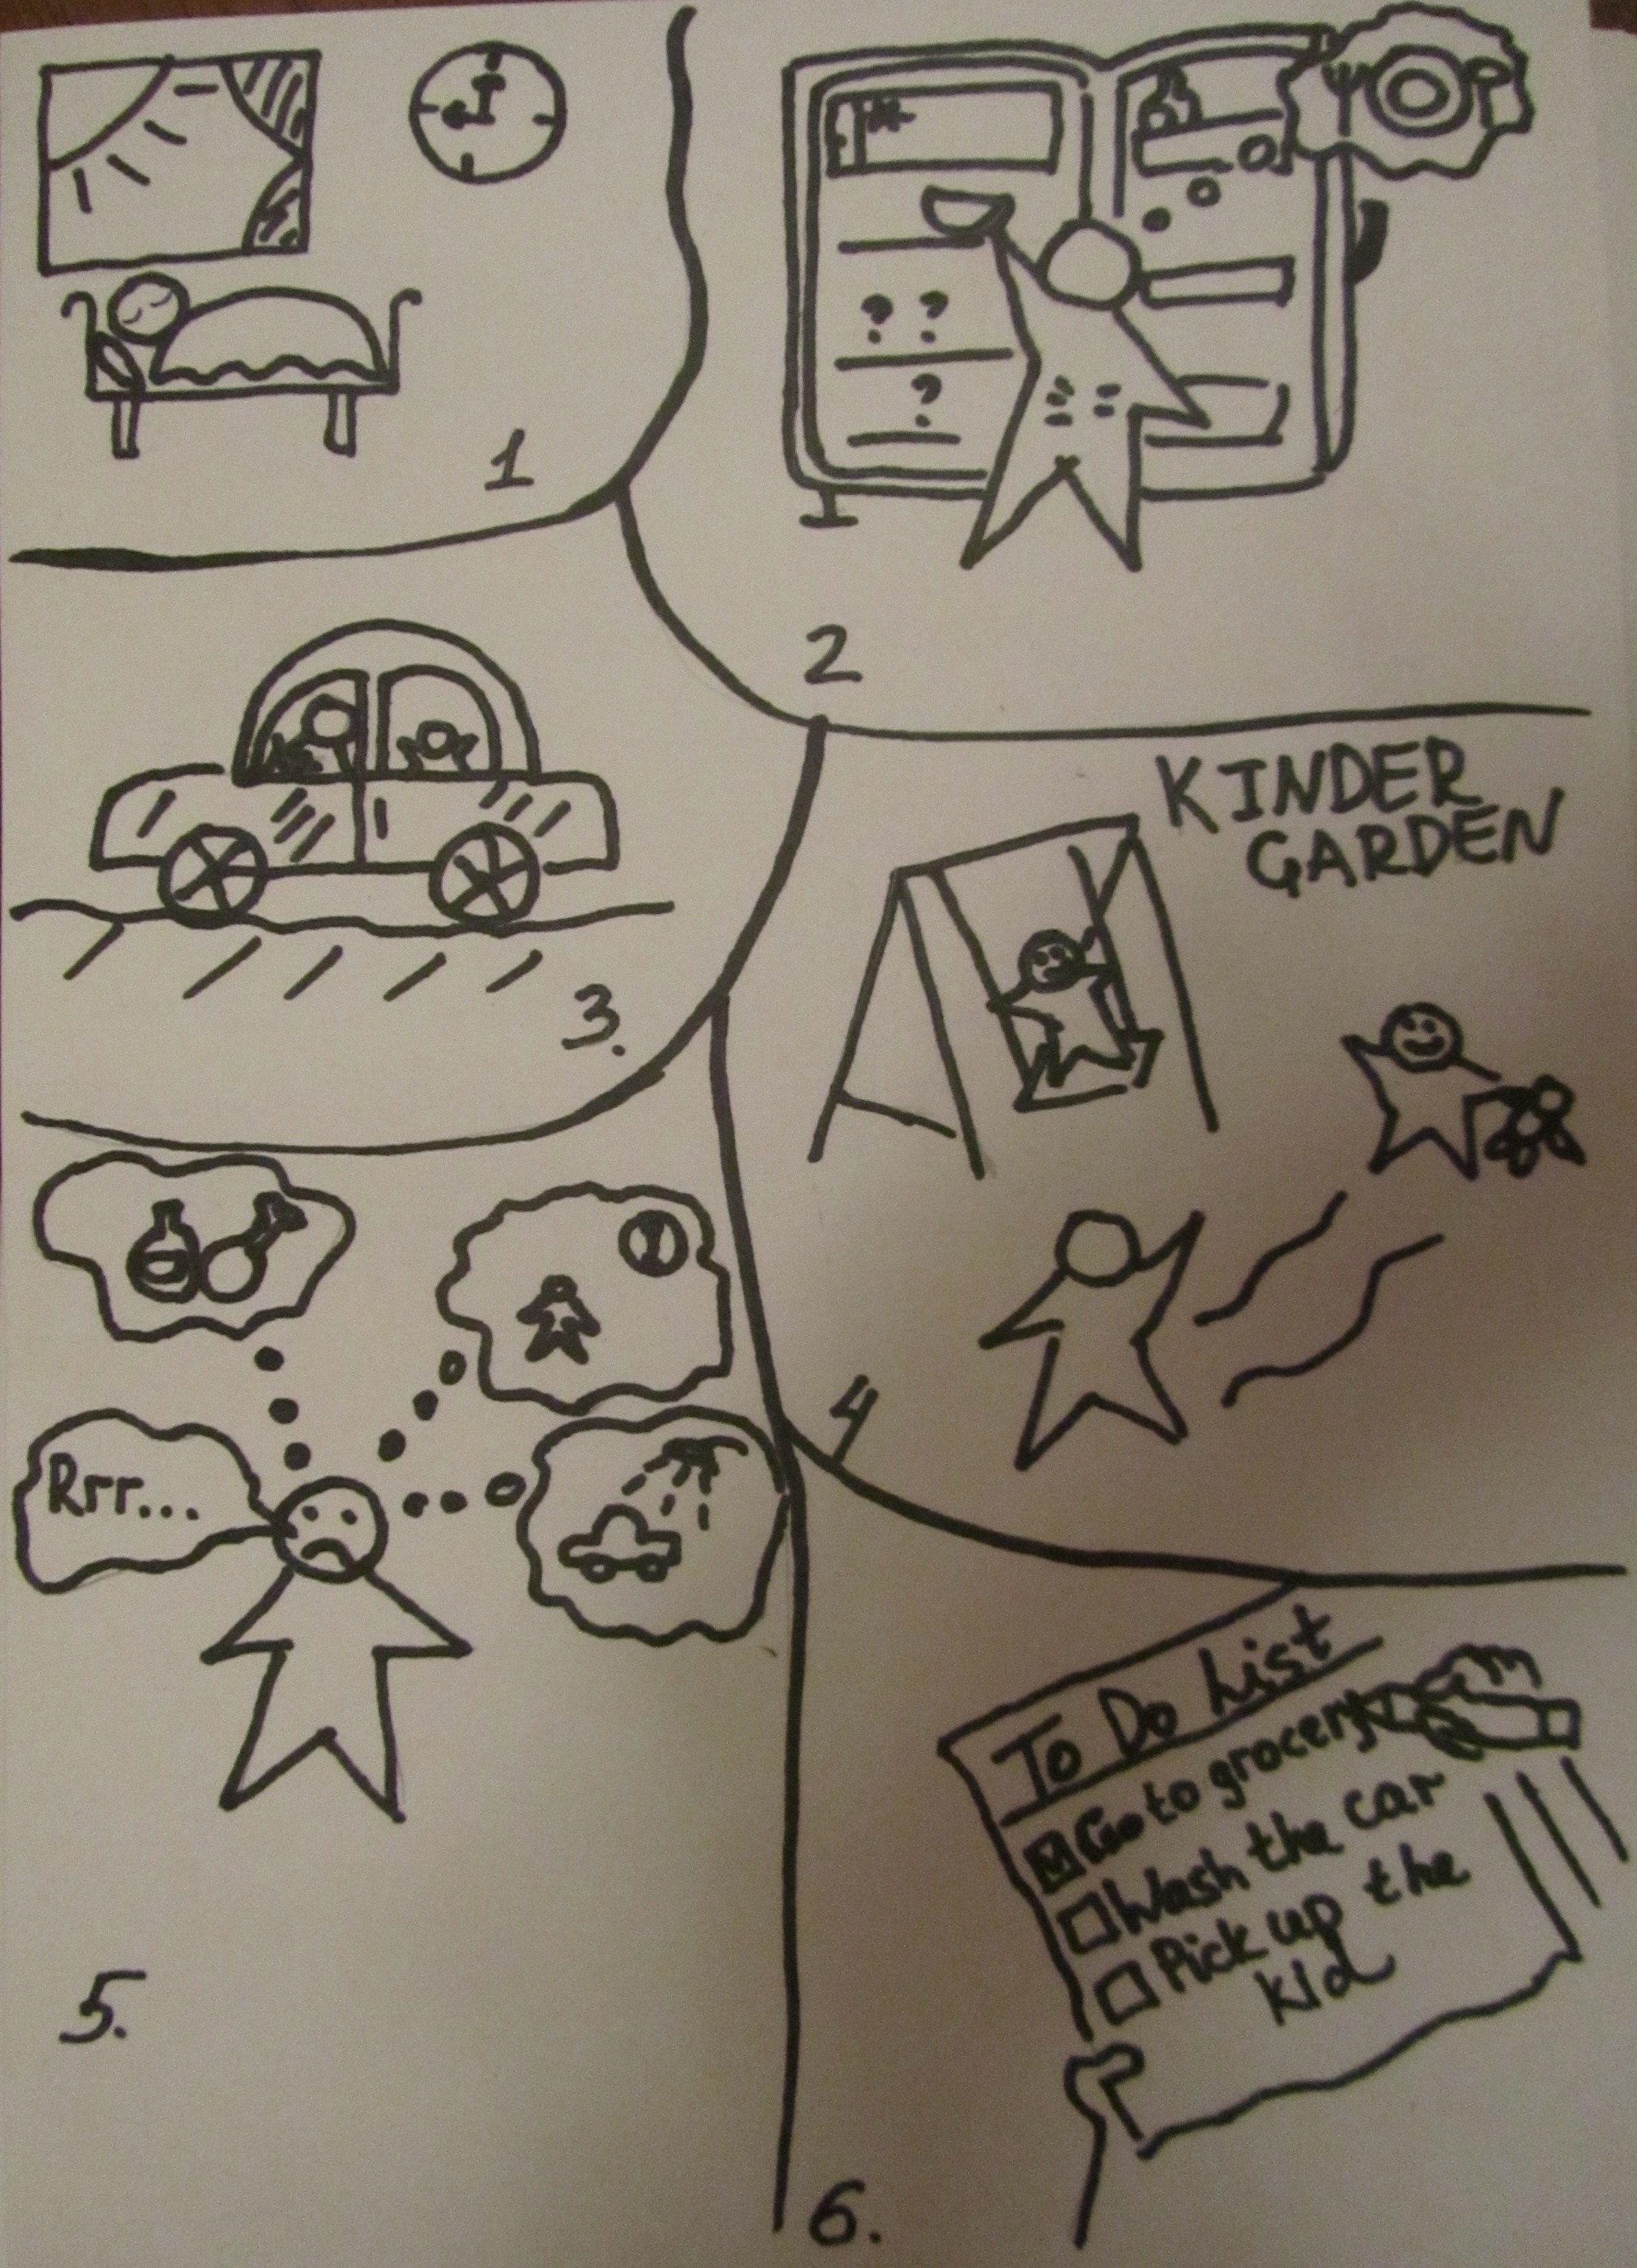 1
? ?
?
2
3.
KINDER
GARDEN
4
Rrr...
5.
To Do List
Go to grocery
Wash the car
Pick up the
kid
6.